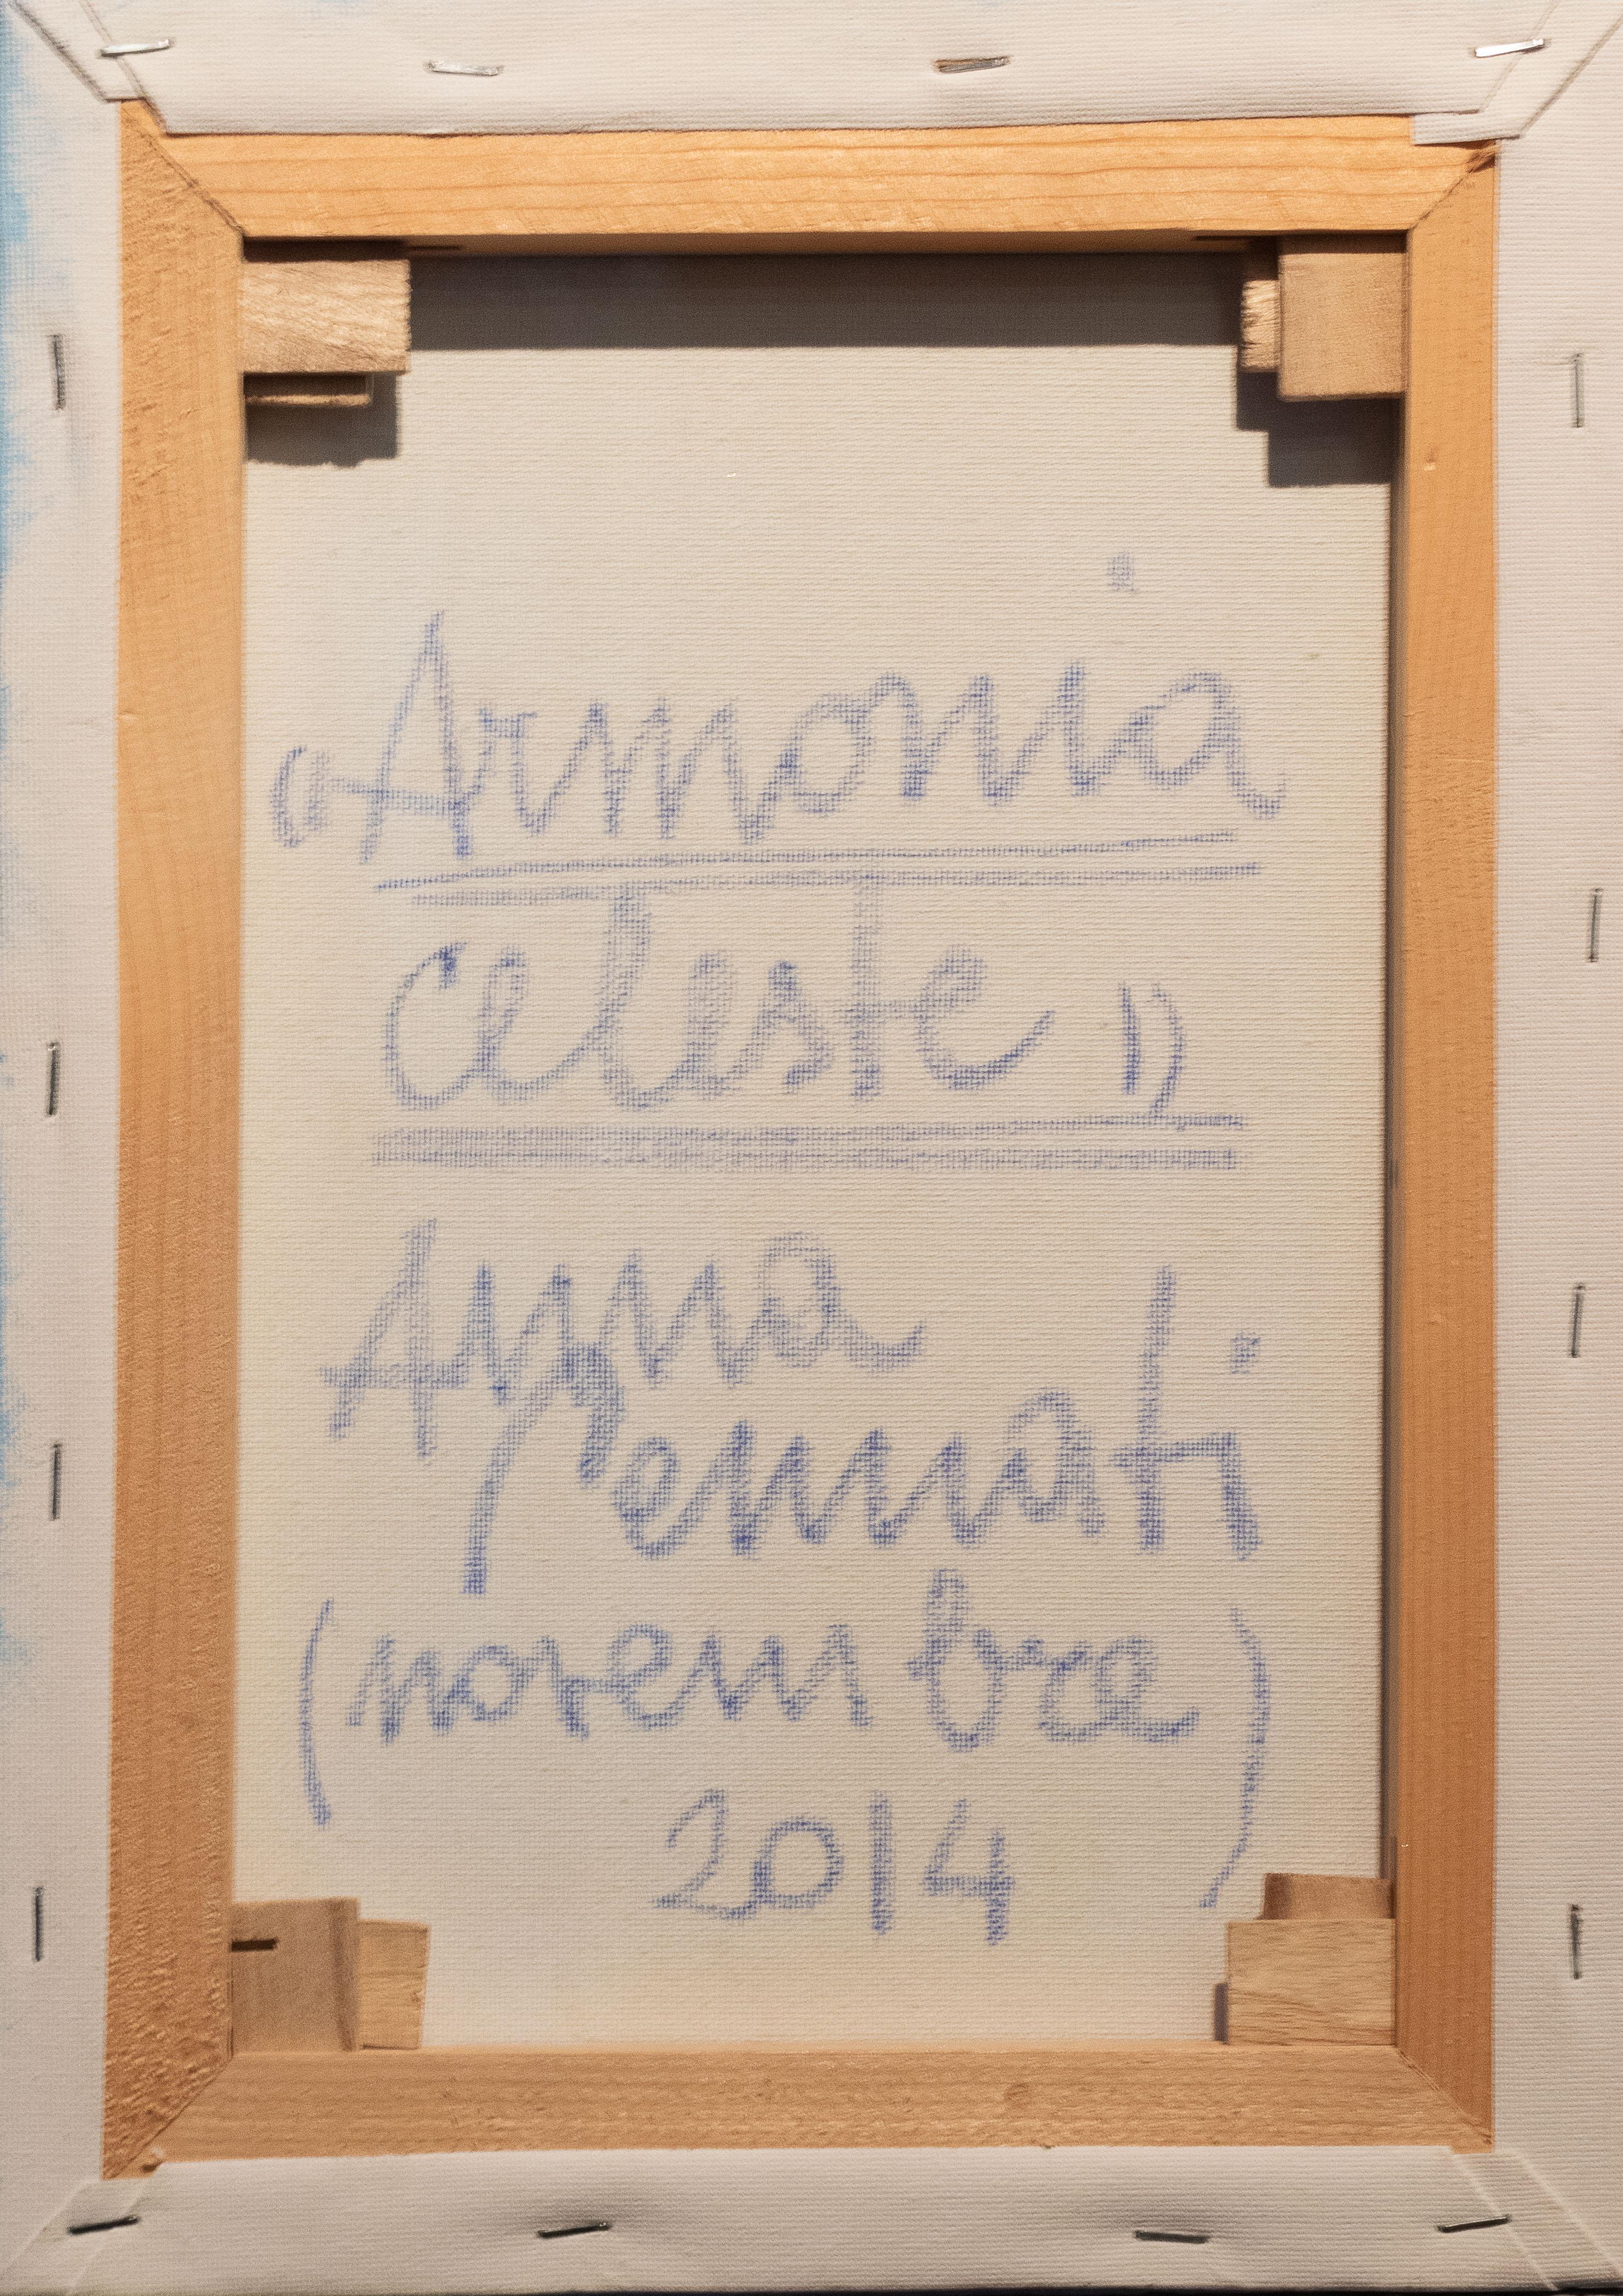 "Armonia
Celeste"
Anna
Pennati
(novembre)
2014